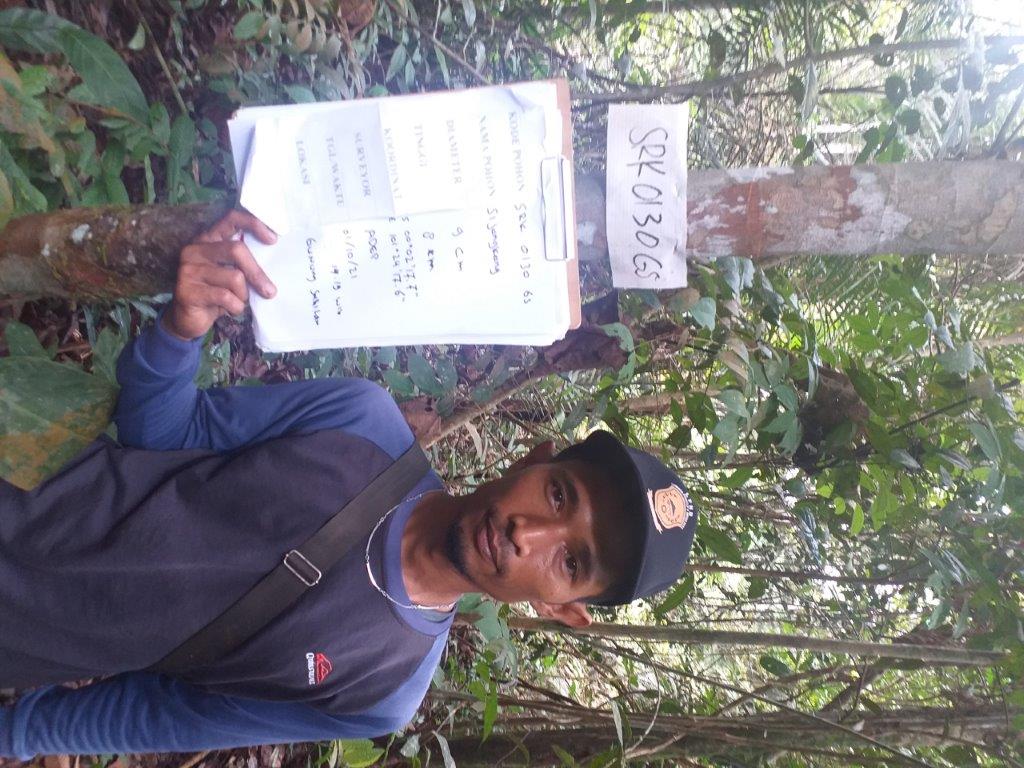 SRK 0130 GS
KODE POHON SRK 0130 GS
NAMA POHON Sijangkang
DIAMETER 9 cm
TINGGI 8 km
KOORDINAT S 00°02'17.7"
E 101°24'17.6"
SURVEYOR P008
TGL WAKTU 01/10/21
LOKASI Gunung Sahilan